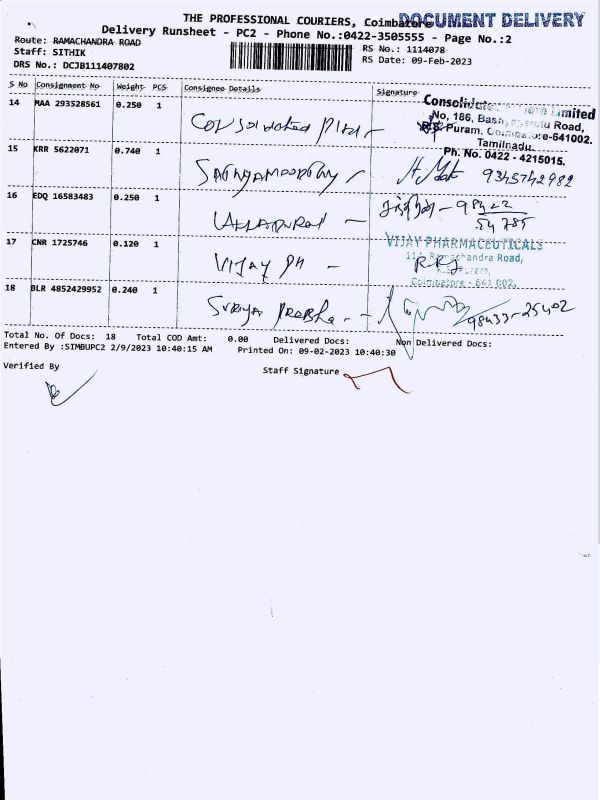 THE PROFESSIONAL COURIERS, Coimbatore
DOCUMENT DELIVERY
Delivery Runsheet - PC2 - Phone No.:0422-3505555 - Page No.:2
Route: RAMACHANDRA ROAD
RS No.: 1114078
Staff: SITHIK
RS Date: 09-Feb-2023
DRS No.: DCJB111407802
S No Consignment No Weight PCS Consignee Details Signature
14 MAA 293528561 0.250 1
Consolidated
Limited
No, 186,
Road,
R.S. Puram, Coimbatore-641002.
Tamilnadu.
Ph. No. 0422 - 4215015.
15 KRR 5622071 0.740 1
Sathyamoorthy 9345742982
16 EDQ 16583483 0.250 1
98422
54785
17 CNR 1725746 0.120 1
Vijay PH -
VIJAY PHARMACEUTICALS
Ramachandra Road,
R.S. Puram,
Coimbatore - 641 002.
18 BLR 4852429952 0.240 1
Surya Prabha - 98433-25402
Total No. Of Docs: 18 Total COD Amt: 0.00 Delivered Docs: Non Delivered Docs:
Entered By :SIMBUPC2 2/9/2023 10:40:15 AM Printed On: 09-02-2023 10:40:30
Verified By
Staff Signature